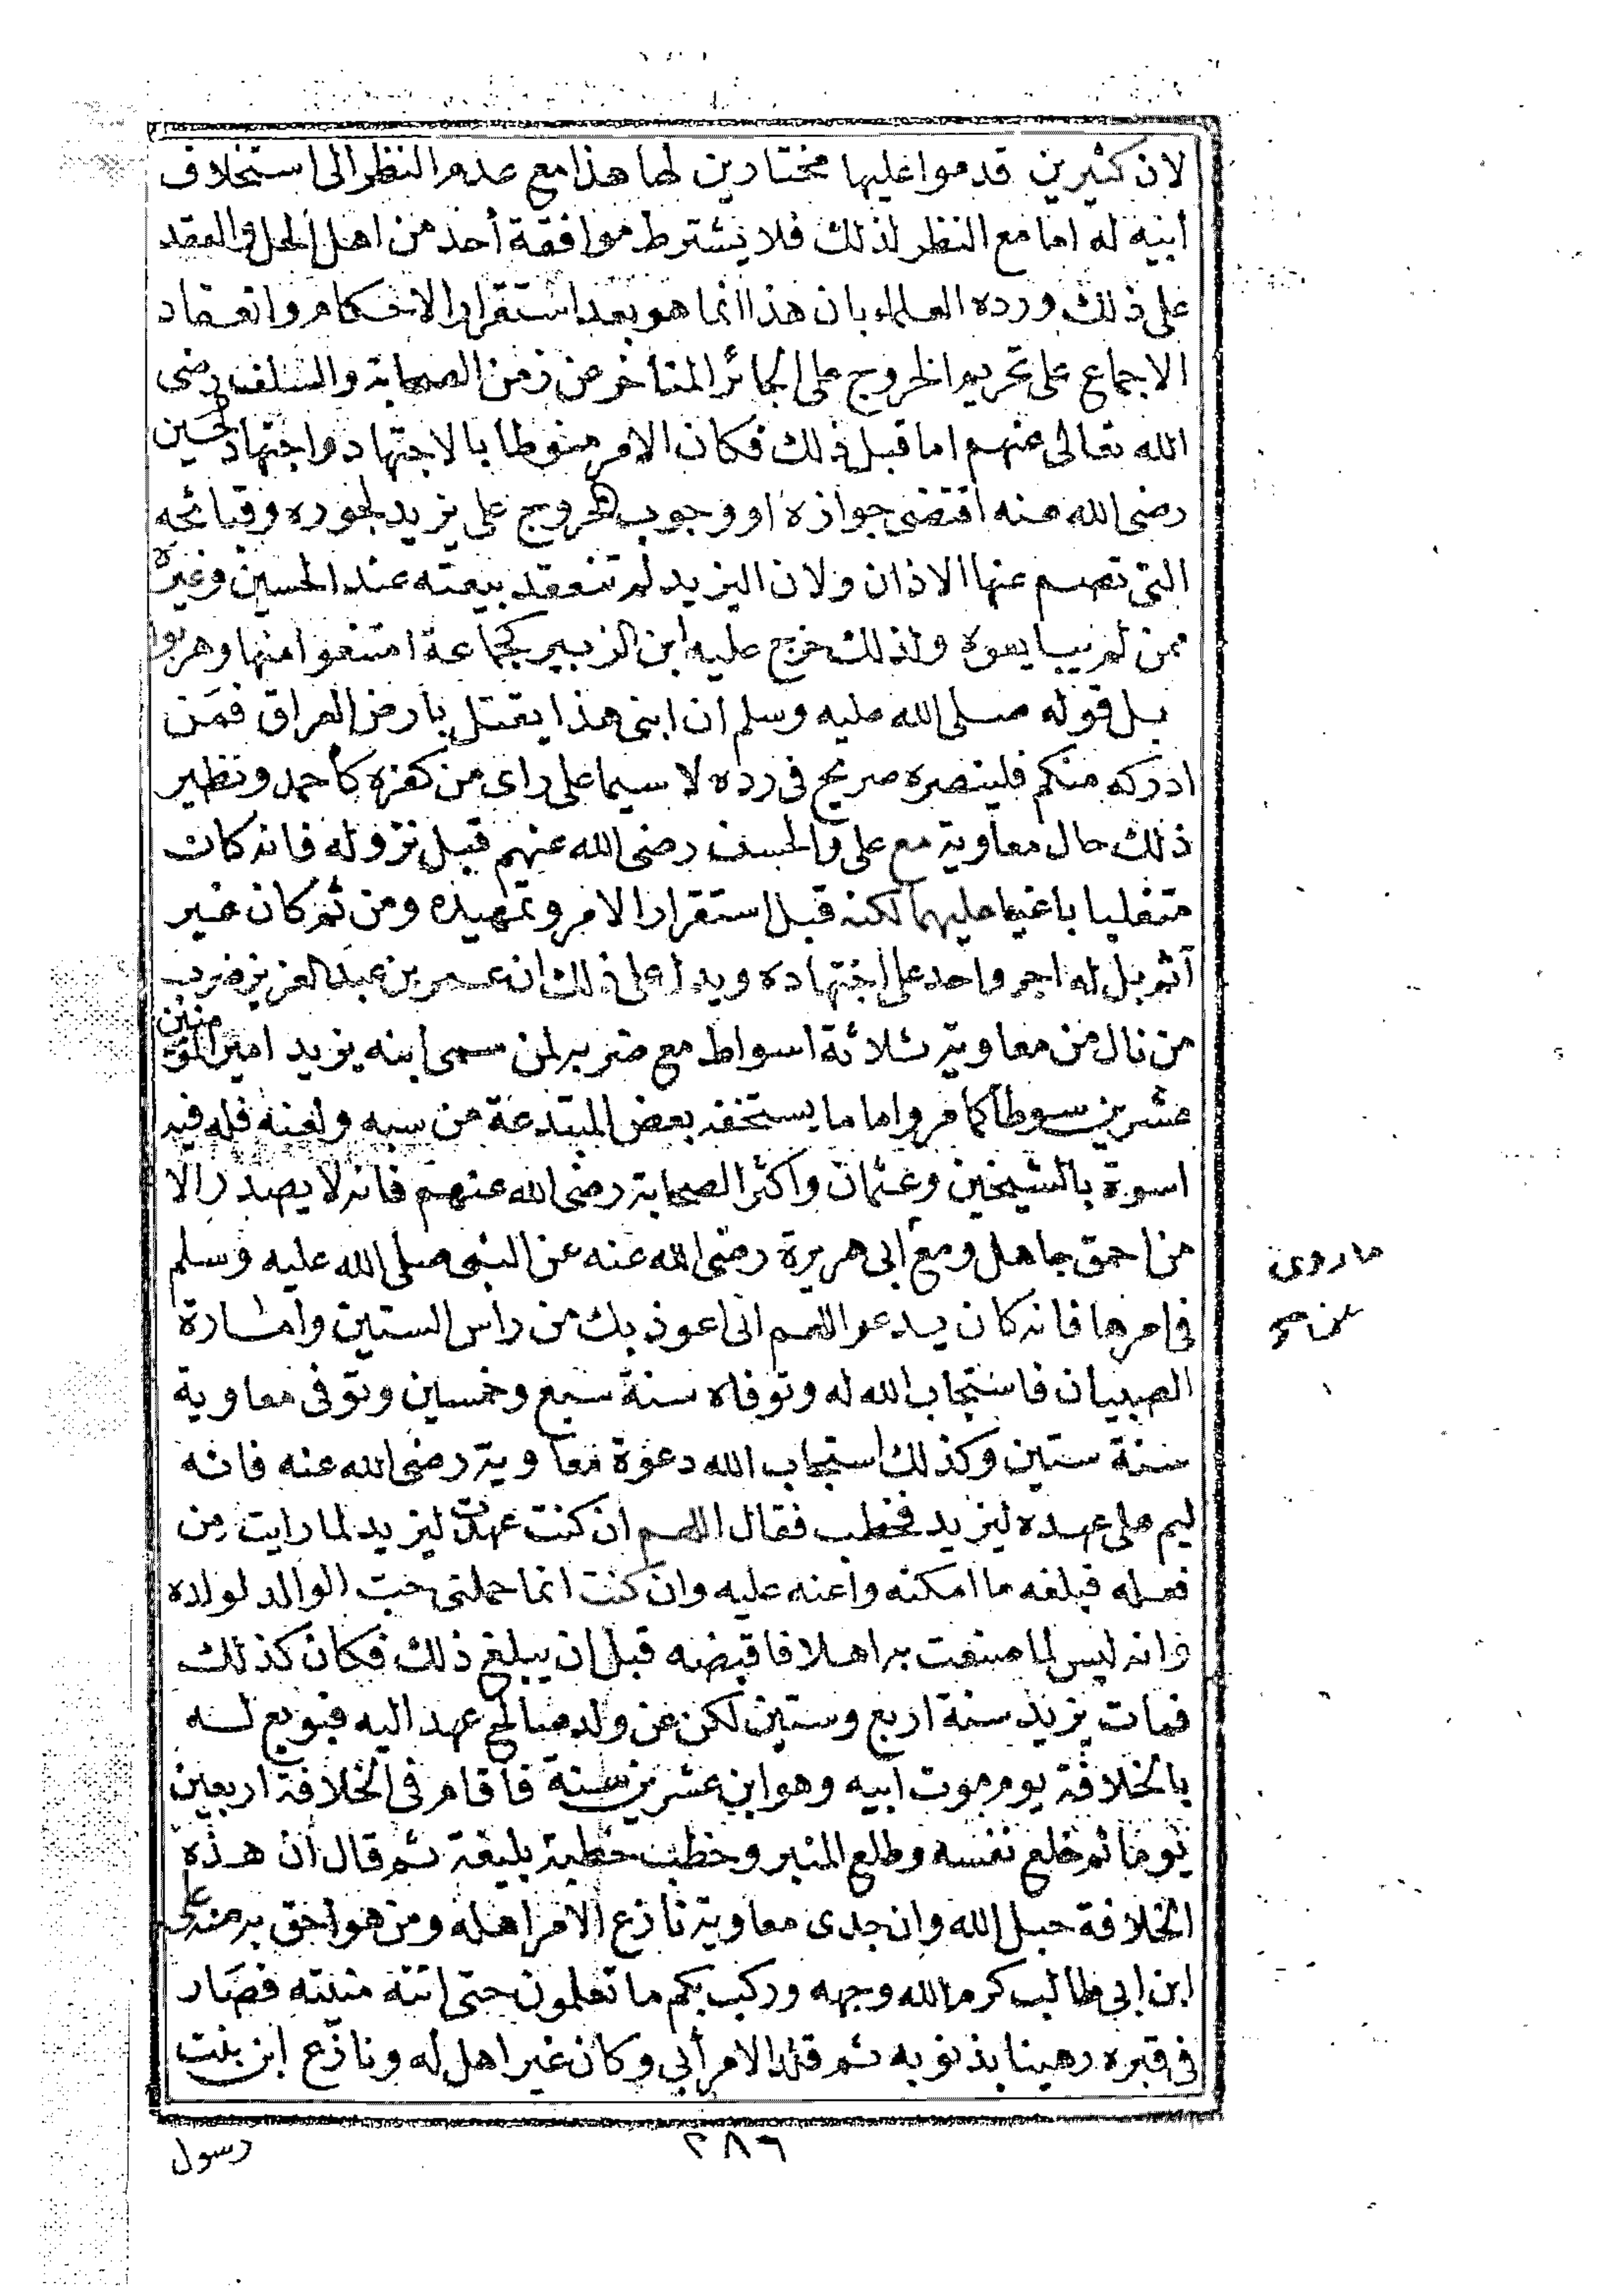 لان كثيرين قدموا عليها مختارين لها هذا مع عدم النظر الى استخلاف
أبيه له اما مع النظر لذلك فلا يشترط موافقة أحد من اهل الحل والعقد
على ذلك ورده العلماء بان هذا انما هو بعد استقرار الاحكام وانعقاد
الاجماع على تحريم الخروج على الجائر المتاخر عن زمن الصحابة والسلف رضى
الله تعالى عنهم اما قبل ذلك فكان الامر منوطا بالاجتهاد واجتهاد الحسين
رضى الله عنه اقتضى جوازه او وجوب الخروج على يزيد لجوره وقبائحه
التي تصم عنها الاذان ولان اليزيد لم تنعقد بيعته عند الحسين وغيره
ممن لم يبايعوه ولذلك خرج عليه ابن الزبير كجماعة امتنعوا منها وهربوا
بل قوله صلى الله عليه وسلم ان ابنى هذا يقتل بارض العراق فمن
ادركه منكم فلينصره صريح فى رده لا سيما على راى من كفره كأحمد ونظير
ذلك حال معاوية مع على والحسن رضى الله عنهم قبل نزوله فانه كان
متغلبا باغيا عليهما لكنه قبل استقرار الامر وتمهيده ومن ثم كان غير
آثم بل له اجر واحد على اجتهاده ويدل على ذلك ان عمر بن عبد العزيز ضرب
من نال من معاوية ثلاثة اسواط مع ضربه لمن سمى ابنه يزيد امير المؤمنين
عشرين سوطا كما مر واما ما يستخفه بعض المبتدعة من سبه ولعنه فله فيه
اسوة بالشيخين وعثمان واكثر الصحابة رضى الله عنهم فانه لا يصدر الا
من احمق جاهل ومع أبى هريرة رضى الله عنه عن النبى صلى الله عليه وسلم
فى امرها فانه كان يدعو اللهم انى اعوذ بك من راس الستين وامارة
الصبيان فاستجاب الله له وتوفاه سنة سبع وخمسين وتوفى معاوية
سنة ستين وكذلك استجاب الله دعوة معاوية رضى الله عنه فانه
ليم على عهده ليزيد فخطب فقال اللهم ان كنت عهدت ليزيد لما رايت من
فعله فبلغه ما امكنه واعنه عليه وان كنت انما حملنى حب الوالد لولده
وانه ليس لما صنعت به اهلا فاقبضه قبل ان يبلغ ذلك فكان كذلك
فمات يزيد سنة اربع وستين لكن عن ولد صالح عهد اليه فبويع له
بالخلافة يوم موت ابيه وهو ابن عشرين سنة فاقام فى الخلافة اربعين
يوما ثم خلع نفسه وطلع المنبر وخطب خطبة بليغة ثم قال ان هذه
الخلافة حبل الله وان جدى معاوية نازع الامر اهله ومن هو احق به منه على
ابن ابي طالب كرم الله وجهه وركب بكم ما تعلمون حتى اتته منيته فصار
فى قبره رهينا بذنوبه ثم قلد الامر أبي وكان غير اهل له ونازع ابن بنت
رسول
٢٨٦